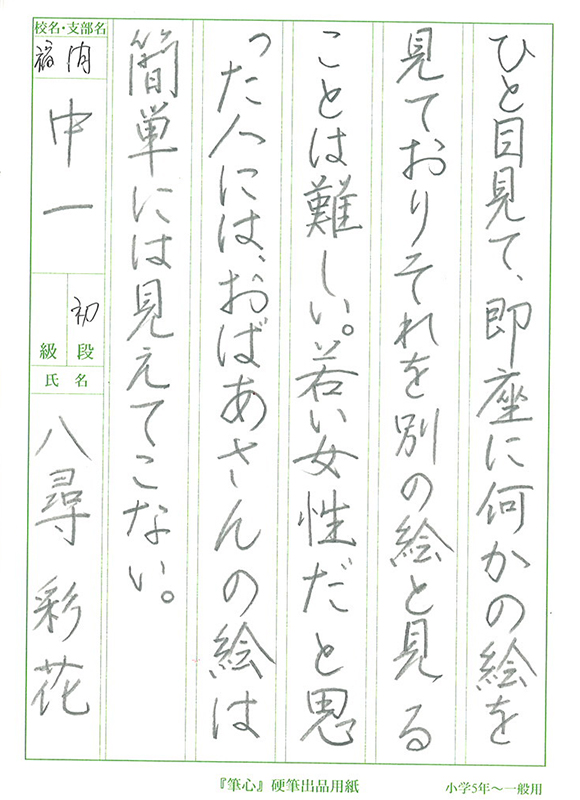 ひと目見て、即座に何かの絵を
見ておりそれを別の絵と見る
ことは難しい。若い女性だと思
った人には、おばあさんの絵は
簡単には見えてこない。
校名・支部名
稲内
中一
初
級 段
氏 名
八尋 彩花
『筆心』硬筆出品用紙
小学5年〜一般用